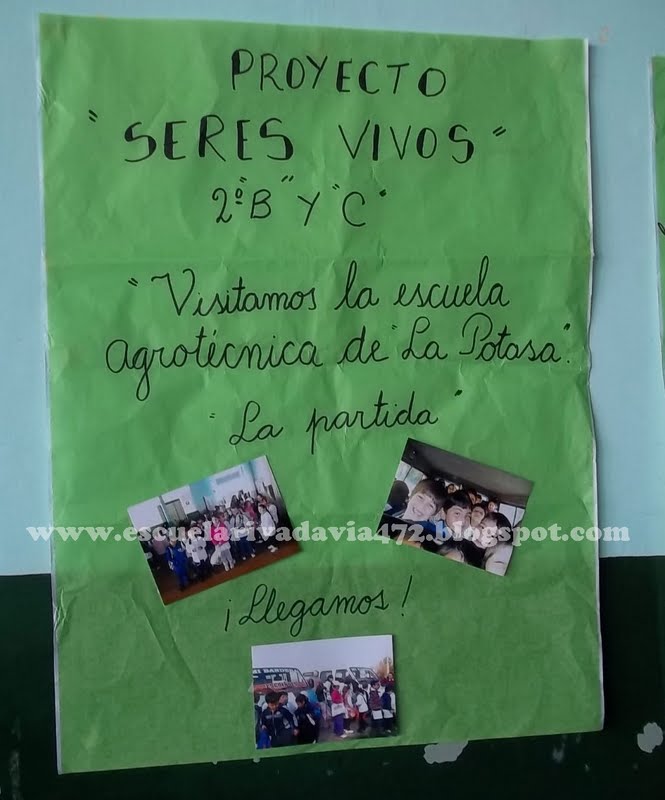 PROYECTO
"SERES VIVOS"
2º"B" Y "C"
"Visitamos la escuela
agrotécnica de "La Potasa".
"La partida"
www.escuelarivadavia472.blogspot.com
¡Llegamos!